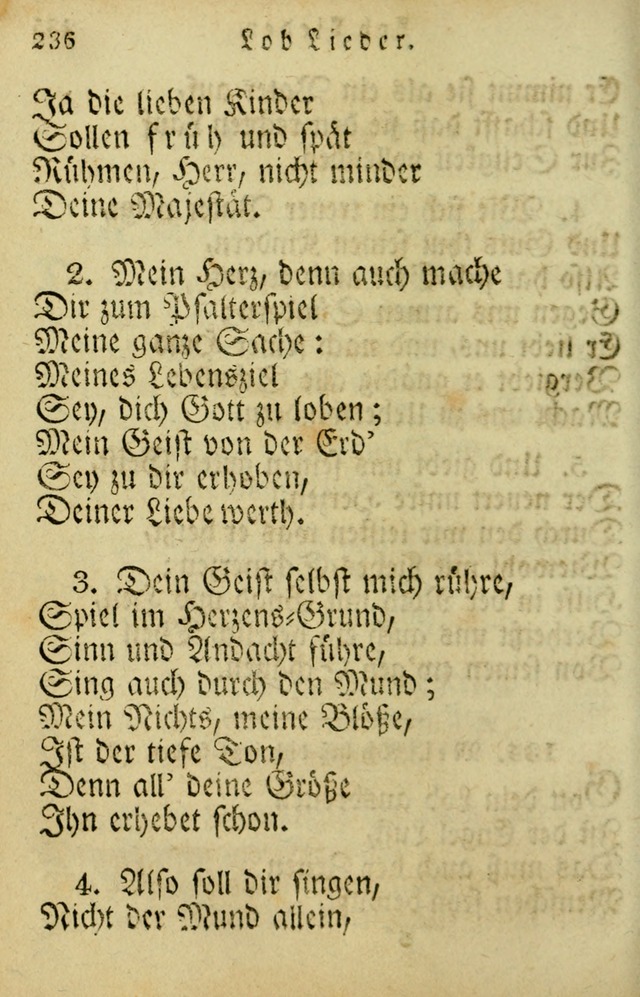 236 Lob Lieder.
Ja die lieben Kinder
Sollen früh und spåt
Růhmen, Herr, nicht minder
Deine Majeståt.
2. Mein Herz, denn auch mache
Dir zum Psalterspiel
Meine ganze Sache:
Meines Lebensziel
Sey, dich Gott zu loben;
Mein Geist von der Erd'
Sey zu dir erhoben,
Deiner Liebe werth.
3. Dein Geist selbst mich růhre,
Spiel im Herzens-Grund,
Sinn und Andacht fůhre,
Sing auch durch den Mund;
Mein Nichts, meine Blöße,
Ist der tiefe Ton,
Denn all' deine Größe
Ihn erhebet schon.
4. Also soll dir singen,
Nicht der Mund allein,